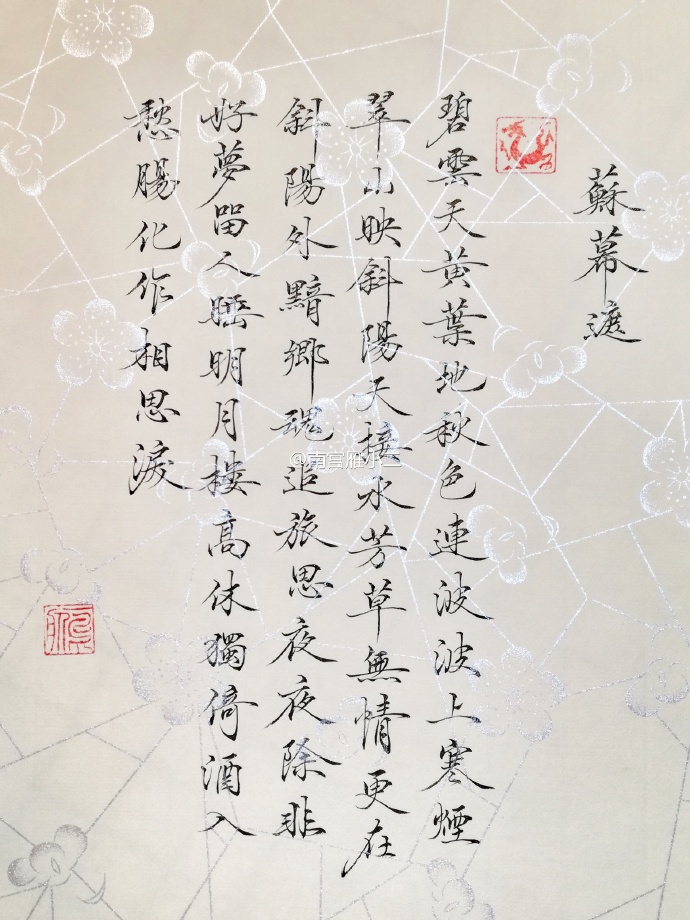 蘇幕遮
碧雲天黄葉地秋色連波波上寒煙
翠山映斜陽天接水芳草無情更在
斜陽外黯鄉魂追旅思夜夜除非
好夢留人睡明月樓高休獨倚酒入
愁腸化作相思淚